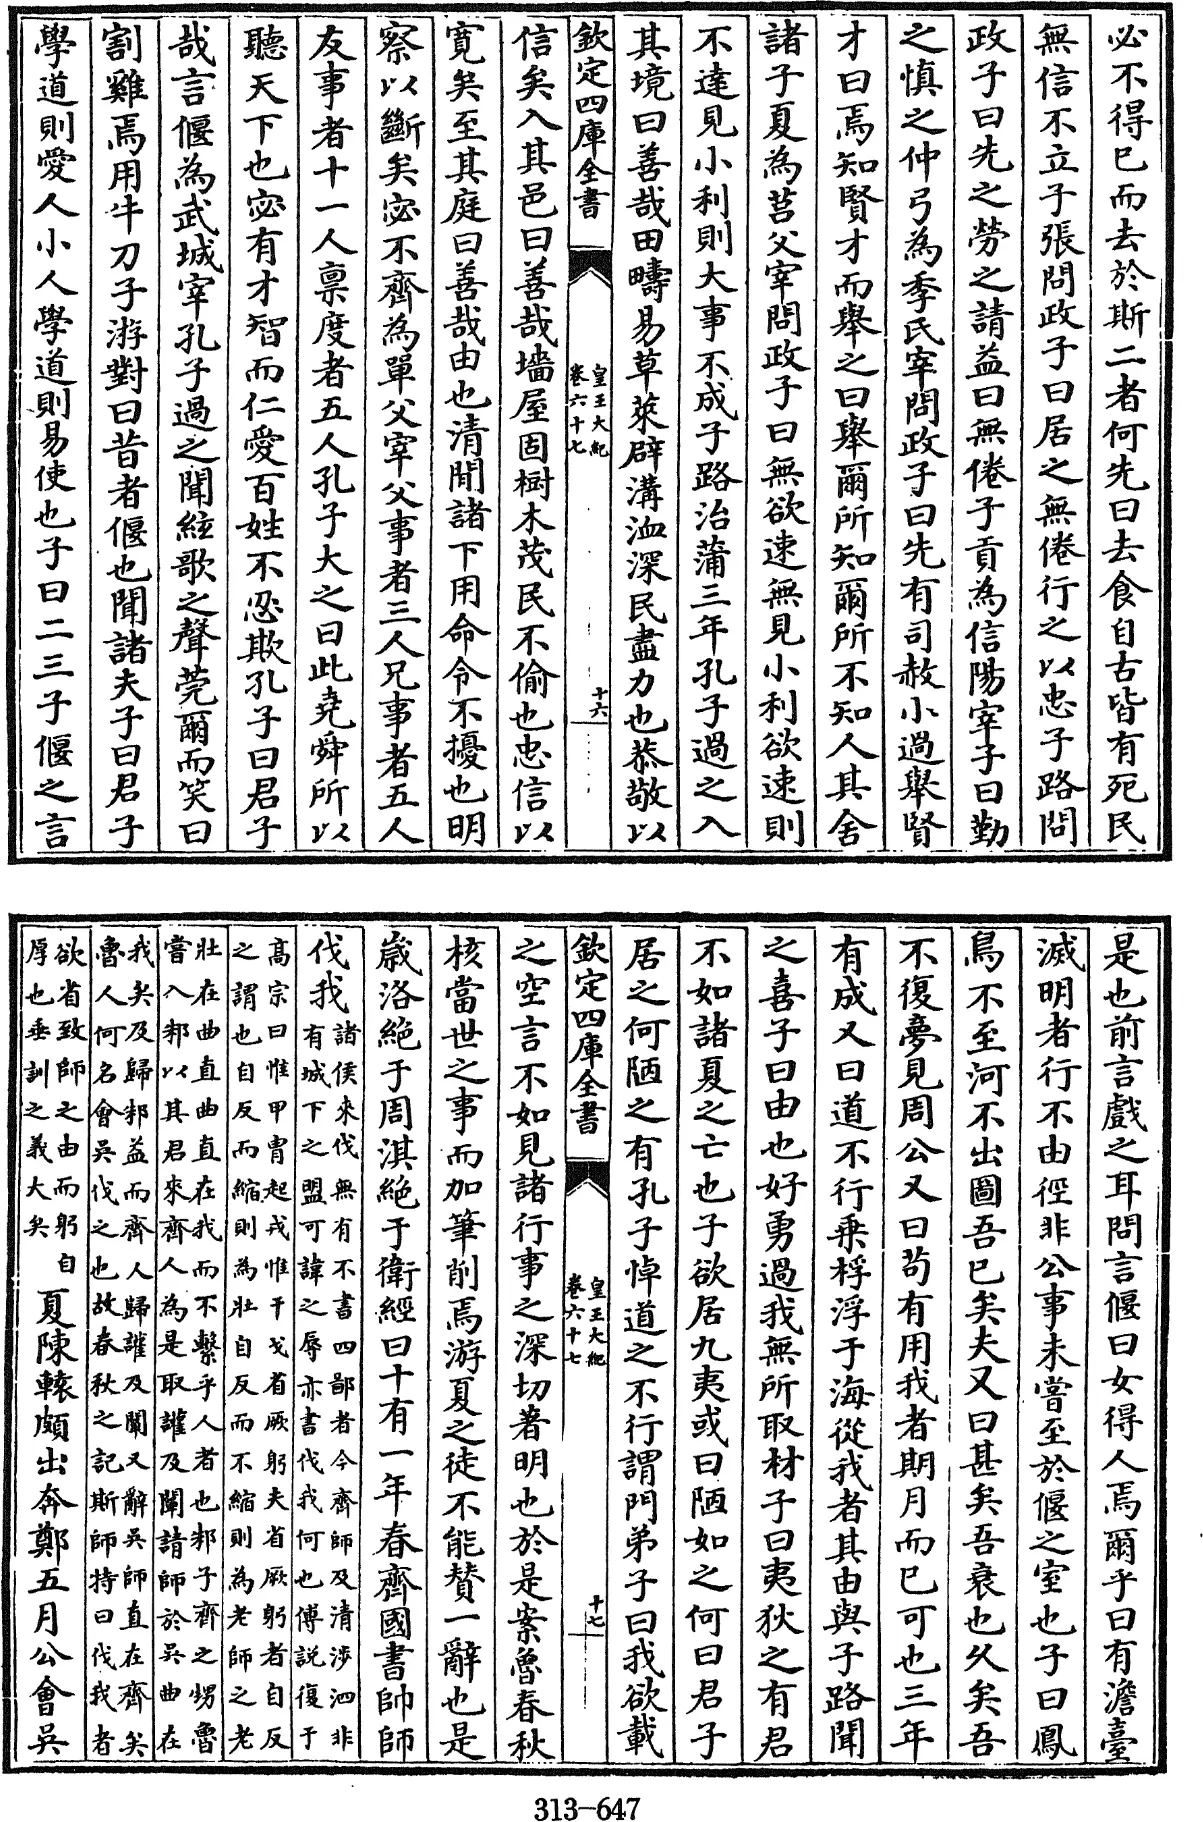 必不得已而去於斯二者何先曰去食自古皆有死民
無信不立子張問政子曰居之無倦行之以忠子路問
政子曰先之勞之請益曰無倦子貢為信陽宰子曰勤
之慎之仲弓為季氏宰問政子曰先有司赦小過舉賢
才曰焉知賢才而舉之曰舉爾所知爾所不知人其舍
諸子夏為莒父宰問政子曰無欲速無見小利欲速則
不達見小利則大事不成子路治蒲三年孔子過之入
其境曰善哉田疇易草萊辟溝洫深民盡力也恭敬以
欽定四庫全書
皇王大紀
卷六十七
十六
信矣入其邑曰善哉墻屋固樹木茂民不偷也忠信以
寛矣至其庭曰善哉由也清閒諸下用命令不擾也明
察以斷矣宓不齊為單父宰父事者三人兄事者五人
友事者十一人禀度者五人孔子大之曰此堯舜所以
聽天下也宓有才智而仁愛百姓不忍欺孔子曰君子
哉言偃為武城宰孔子過之聞絃歌之聲莞爾而笑曰
割雞焉用牛刀子游對曰昔者偃也聞諸夫子曰君子
學道則愛人小人學道則易使也子曰二三子偃之言
是也前言戲之耳問言偃曰女得人焉爾乎曰有澹臺
滅明者行不由徑非公事未嘗至於偃之室也子曰鳳
鳥不至河不出圖吾已矣夫又曰甚矣吾衰也久矣吾
不復夢見周公又曰苟有用我者期月而已可也三年
有成又曰道不行乗桴浮于海從我者其由與子路聞
之喜子曰由也好勇過我無所取材子曰夷狄之有君
不如諸夏之亡也子欲居九夷或曰陋如之何曰君子
居之何陋之有孔子悼道之不行謂門弟子曰我欲載
欽定四庫全書
皇王大紀
卷六十七
十七
之空言不如見諸行事之深切著明也於是案魯春秋
核當世之事而加筆削焉游夏之徒不能賛一辭也是
歳洛絶于周淇絶于衛經曰十有一年春齊國書帥師
伐我
諸侯來伐無有不書四鄙者今齊師及清涉泗非
有城下之盟可諱之辱亦書伐我何也傅説復于
高宗曰惟甲胄起戎惟干戈省厥躬夫省厥躬者自反
之謂也自反而縮則為壯自反而不縮則為老師之老
壯在曲直曲直在我而不繫乎人者也邾子齊之甥魯
嘗入邾以其君來齊人為是取讙及闡請師於吳曲在
我矣及歸邾益而齊人歸讙及闡又辭吳師直在齊矣
魯人何名會吳伐之也故春秋之記斯師特曰伐我者
欲省致師之由而躬自
厚也垂訓之義大矣
夏陳轅頗出奔鄭五月公會吳
313-647